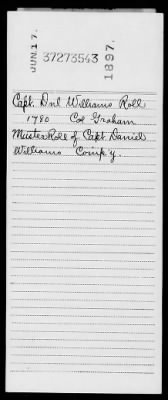 JUN. 17.
37273543
1897.
Capt. Dnl Williams Roll
1780 Col Graham
Muster Roll of Capt Daniel
Williams Comp'y.